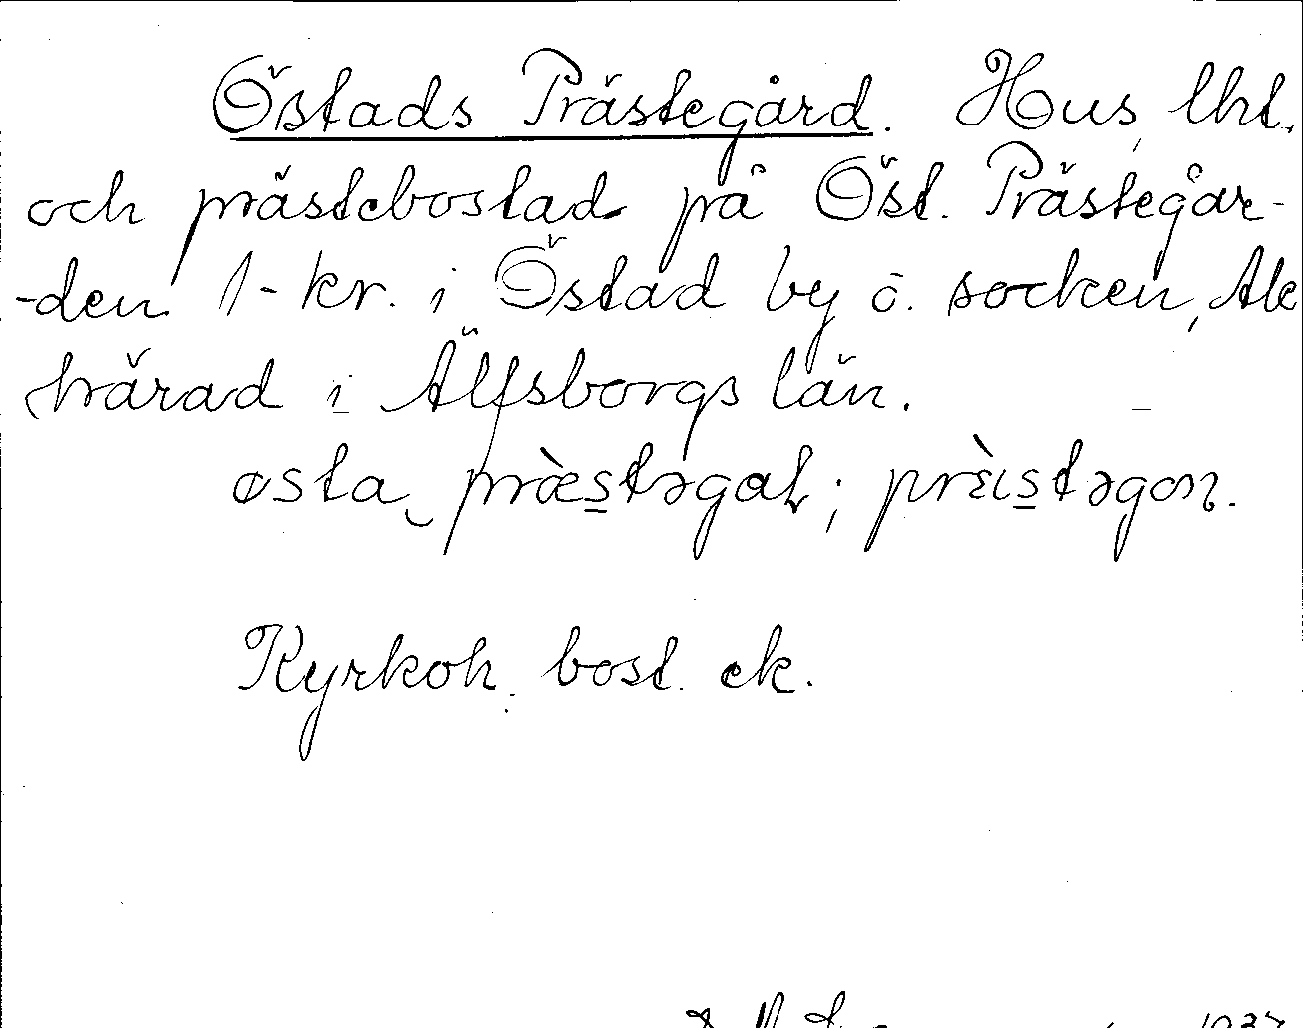 Östads Prästegård. Hus, lht.
och prästebostad på Öst. Prästegår-
-den 1-kr. i Östad by o. socken, Ale
härad i Älfsborgs län.
østa præ̀stəgaɫ; prèistəgoɲ.
Kyrkoh. bost. ek.
1937